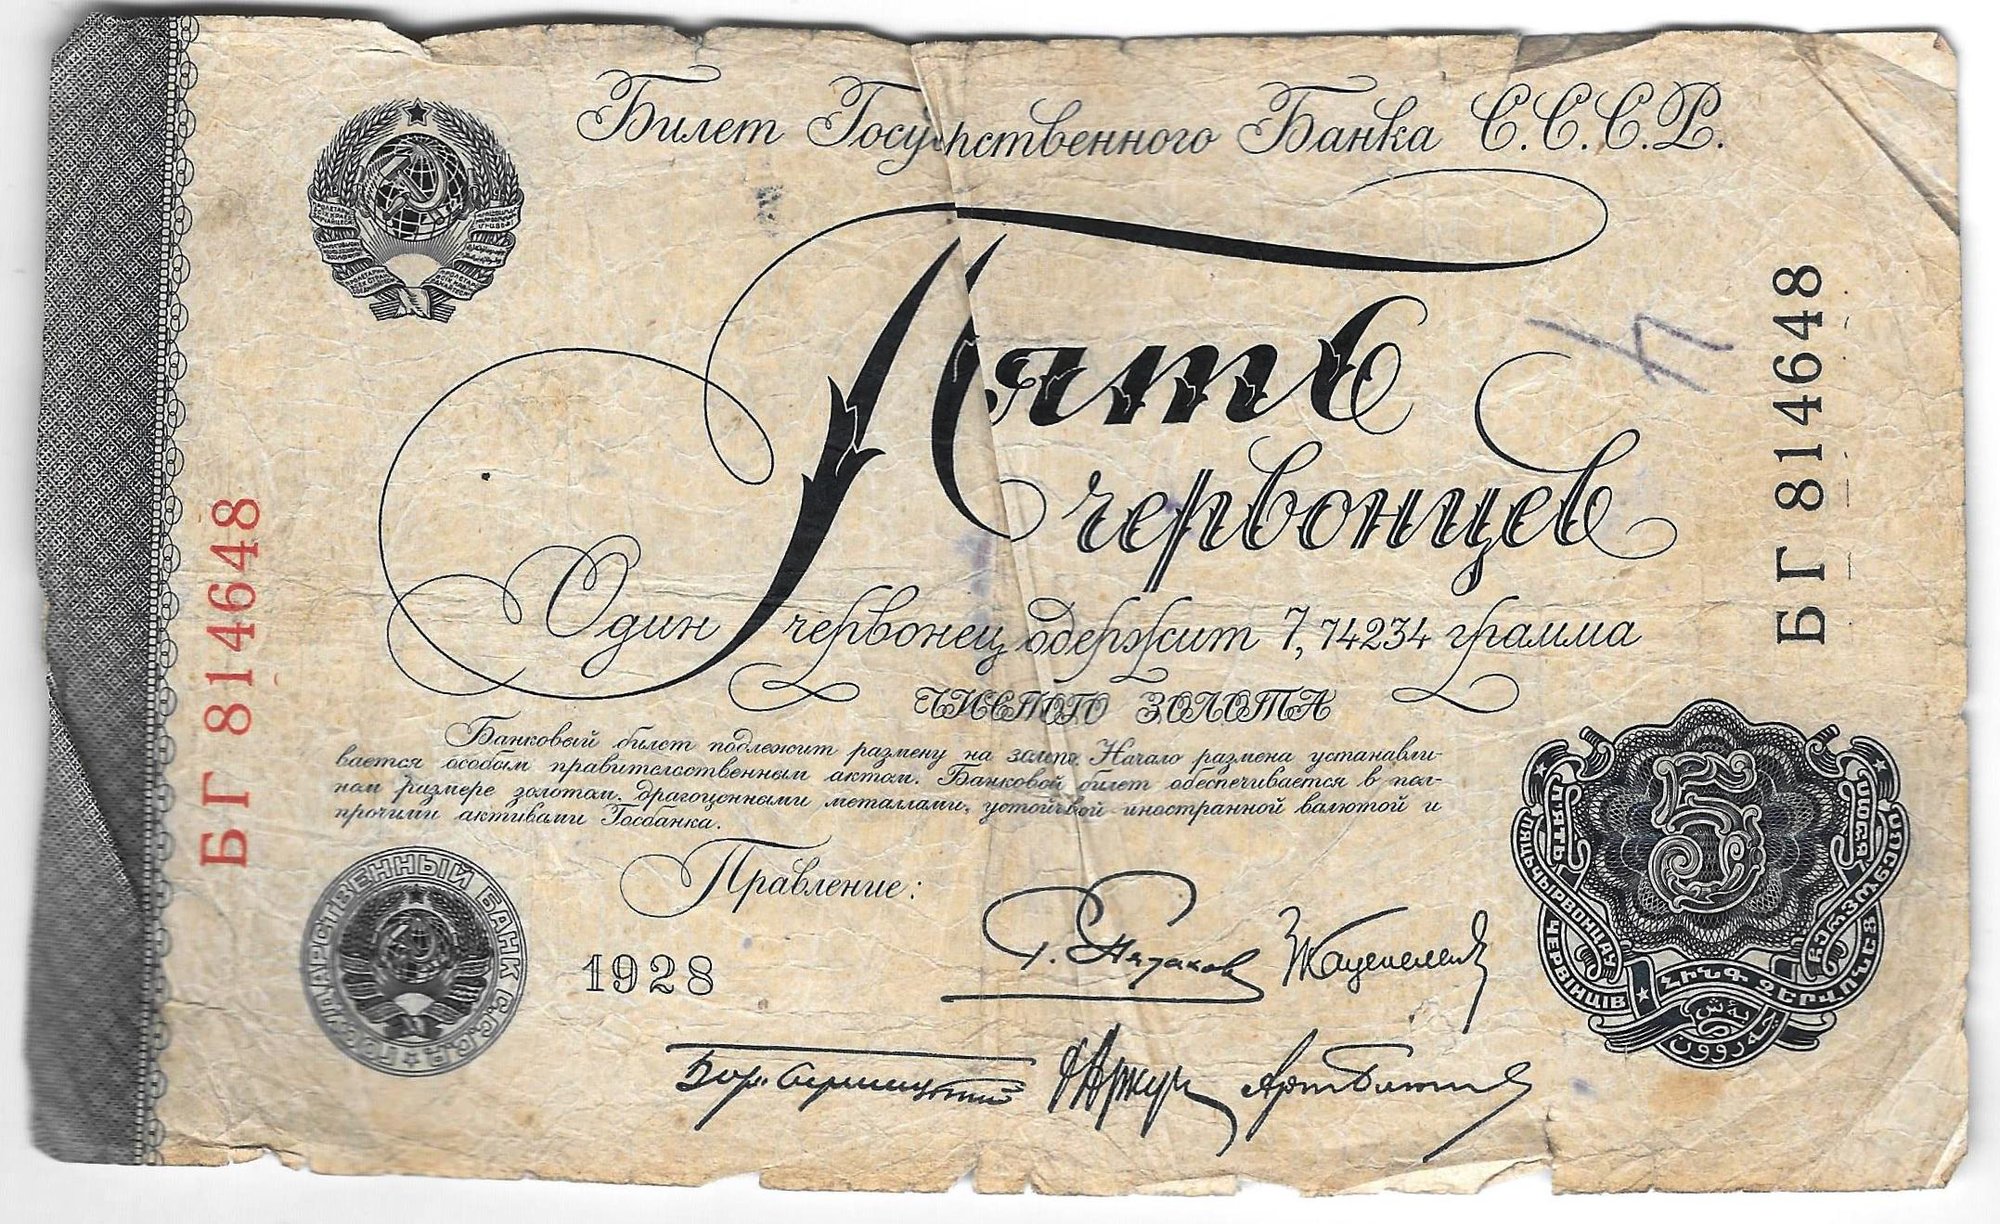 Билет Государственного Банка С.С.С.Р.
Пять
червонцев
Один червонец содержит 7,74234 грамма
ЧИСТОГО ЗОЛОТА
Банковый билет подлежит размену на золото. Начало размена устанавли-
вается особым правительственным актом. Банковый билет обеспечивается в пол-
ном размере золотом, драгоценными металлами, устойчивой иностранной валютой и
прочими активами Госбанка.
Правление:
1928
БГ 814648
БГ 814648
ГОСУДАРСТВЕННЫЙ БАНК С.С.С.Р.
5
П'ЯТЬ
ЧЕРВІНЦІВ
ПЯЦЬ ЧЫРВОНЦАЎ
ՀԻՆԳ ՉԵՐՎՈՆԵՑ